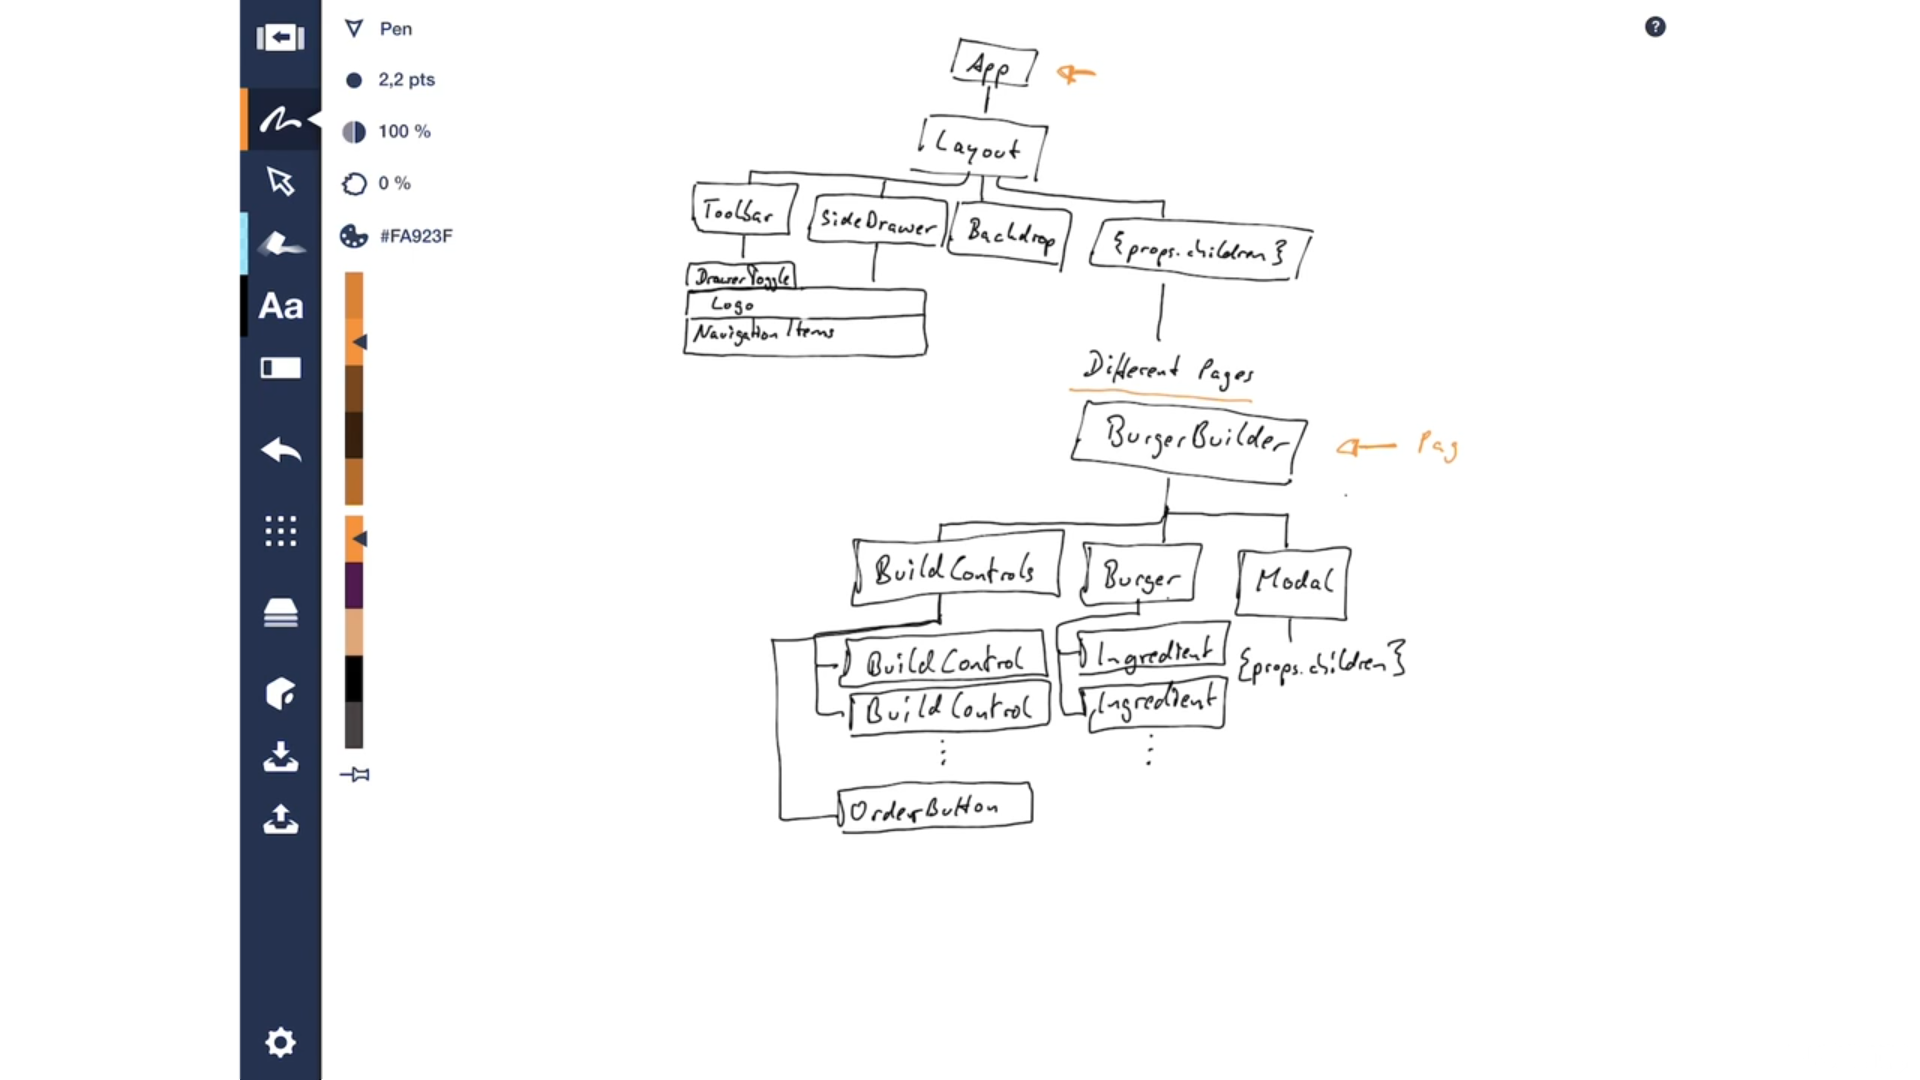 Pen
2,2 pts
100 %
0 %
#FA923F
Aa
?
App
Layout
Toolbar
SideDrawer
Backdrop
{props.children}
DrawerToggle
Logo
Navigation Items
Different Pages
BurgerBuilder
Pag
BuildControls
Burger
Modal
BuildControl
Ingredient
{props.children}
BuildControl
Ingredient
OrderButton